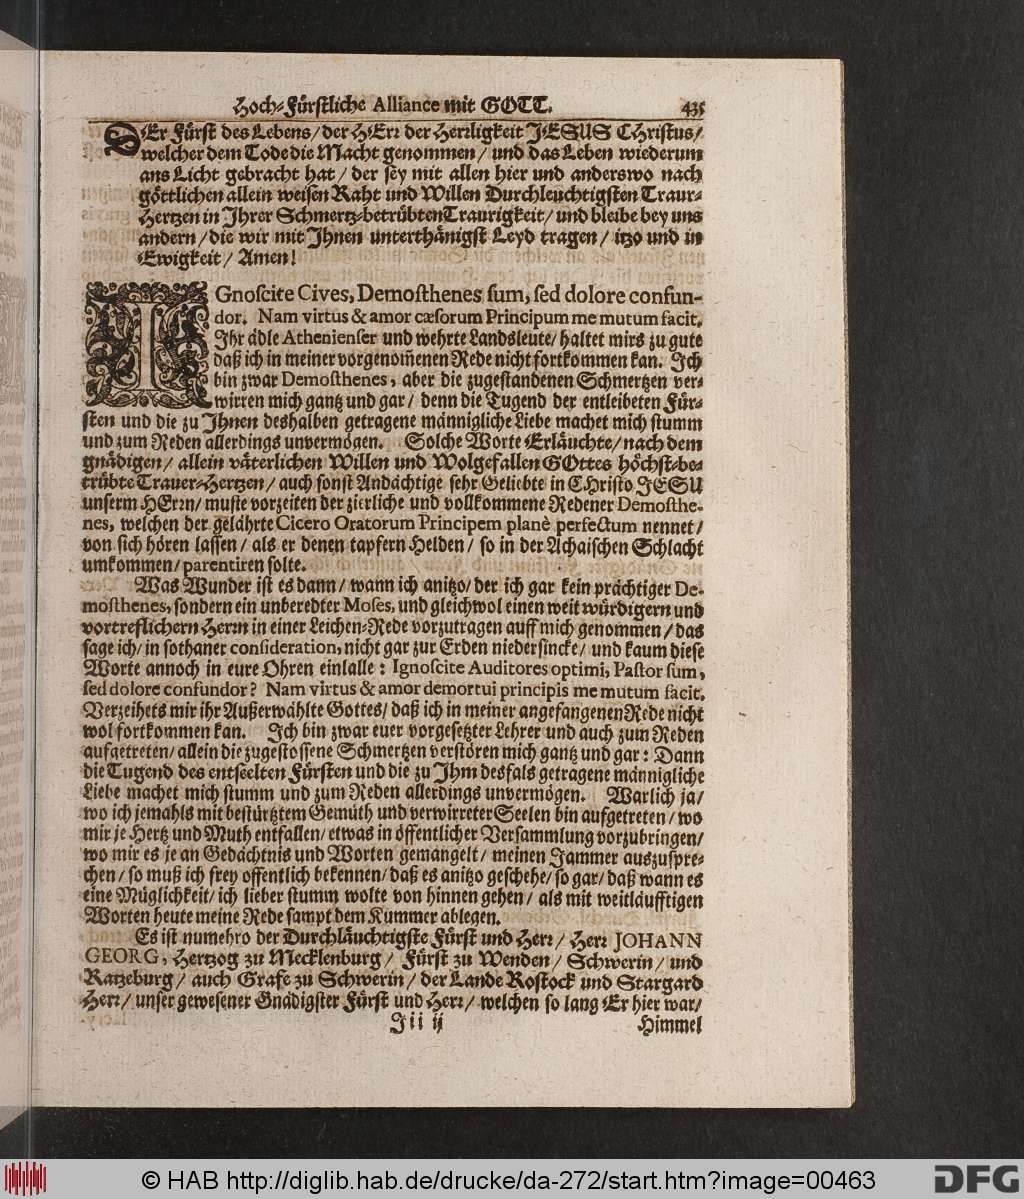 Hoch-Fürstliche Alliance mit GOTT. 435
DEr Fürst des Lebens/ der HErr der Herrligkeit JESUS CHristus/
welcher dem Tode die Macht genommen/ und das Leben wiederum
ans Licht gebracht hat/ der sey mit allen hier und anderswo nach
göttlichen allein weisen Raht und Willen Durchleuchtigsten Traur-
Hertzen in Jhrer Schmertz-betrübten Traurigkeit/ und bleibe bey uns
andern/ die wir mit Jhnen unterthänigst Leyd tragen/ itzo und in
Ewigkeit/ Amen!
IGnoscite Cives, Demosthenes sum, sed dolore confun-
dor. Nam virtus & amor cæsorum Principum me mutum facit.
Jhr ädle Athenienser und wehrte Landsleute/ haltet mirs zu gute
daß ich in meiner vorgenom̃enen Rede nicht fortkommen kan. Jch
bin zwar Demosthenes, aber die zugestandenen Schmertzen ver-
wirren mich gantz und gar/ denn die Tugend der entleibeten Für-
sten und die zu Jhnen deshalben getragene männigliche Liebe machet mich stumm
und zum Reden allerdings unvermögen. Solche Worte Erläuchte/ nach dem
gnädigen/ allein väterlichen Willen und Wolgefallen GOttes höchst-be-
trübte Trauer-Hertzen/ auch sonst Andächtige sehr Geliebte in CHristo JESU
unserm HErrn/ muste vorzeiten der zierliche und vollkommene Redener Demosthe-
nes, welchen der gelährte Cicero Oratorum Principem planè perfectum nennet/
von sich hören lassen/ als er denen tapfern Helden/ so in der Achaischen Schlacht
umkommen/ parentiren solte.
Was Wunder ist es dann/ wann ich anitzo/ der ich gar kein prächtiger De-
mosthenes, sondern ein unberedter Moses, und gleichwol einen weit würdigern und
vortreflichern Herrn in einer Leichen-Rede vorzutragen auff mich genommen/ das
sage ich/ in sothaner consideration, nicht gar zur Erden niedersincke/ und kaum diese
Worte annoch in eure Ohren einlalle: Ignoscite Auditores optimi, Pastor sum,
sed dolore confundor? Nam virtus & amor demortui principis me mutum facit.
Verzeihets mir ihr Außerwählte Gottes/ daß ich in meiner angefangenen Rede nicht
wol fortkommen kan. Jch bin zwar euer vorgesetzter Lehrer und auch zum Reden
aufgetreten/ allein die zugestossene Schmertzen verstören mich gantz und gar: Dann
die Tugend des entseelten Fürsten und die zu Jhm desfals getragene männigliche
Liebe machet mich stumm und zum Reden allerdings unvermögen. Warlich ja/
wo ich jemahls mit bestürtztem Gemüth und verwirreter Seelen bin aufgetreten/ wo
mir je Hertz und Muth entfallen/ etwas in öffentlicher Versammlung vorzubringen/
wo mir es je an Gedächtnis und Worten gemangelt/ meinen Jammer auszuspre-
chen/ so muß ich frey offentlich bekennen/ daß es anitzo geschehe/ so gar/ daß wann es
eine Müglichkeit/ ich lieber stumm wolte von hinnen gehen/ als mit weitläufftigen
Worten heute meine Rede sampt dem Kummer ablegen.
Es ist numehro der Durchläuchtigste Fürst und Herr/ Herr JOHANN
GEORG, Hertzog zu Mecklenburg/ Fürst zu Wenden/ Schwerin/ und
Ratzeburg/ auch Grafe zu Schwerin/ der Lande Rostock und Stargard
Herr/ unser gewesener Gnädigster Fürst und Herr/ welchen so lang Er hier war/
Jii ij Himmel
© HAB http://diglib.hab.de/drucke/da-272/start.htm?image=00463
DFG